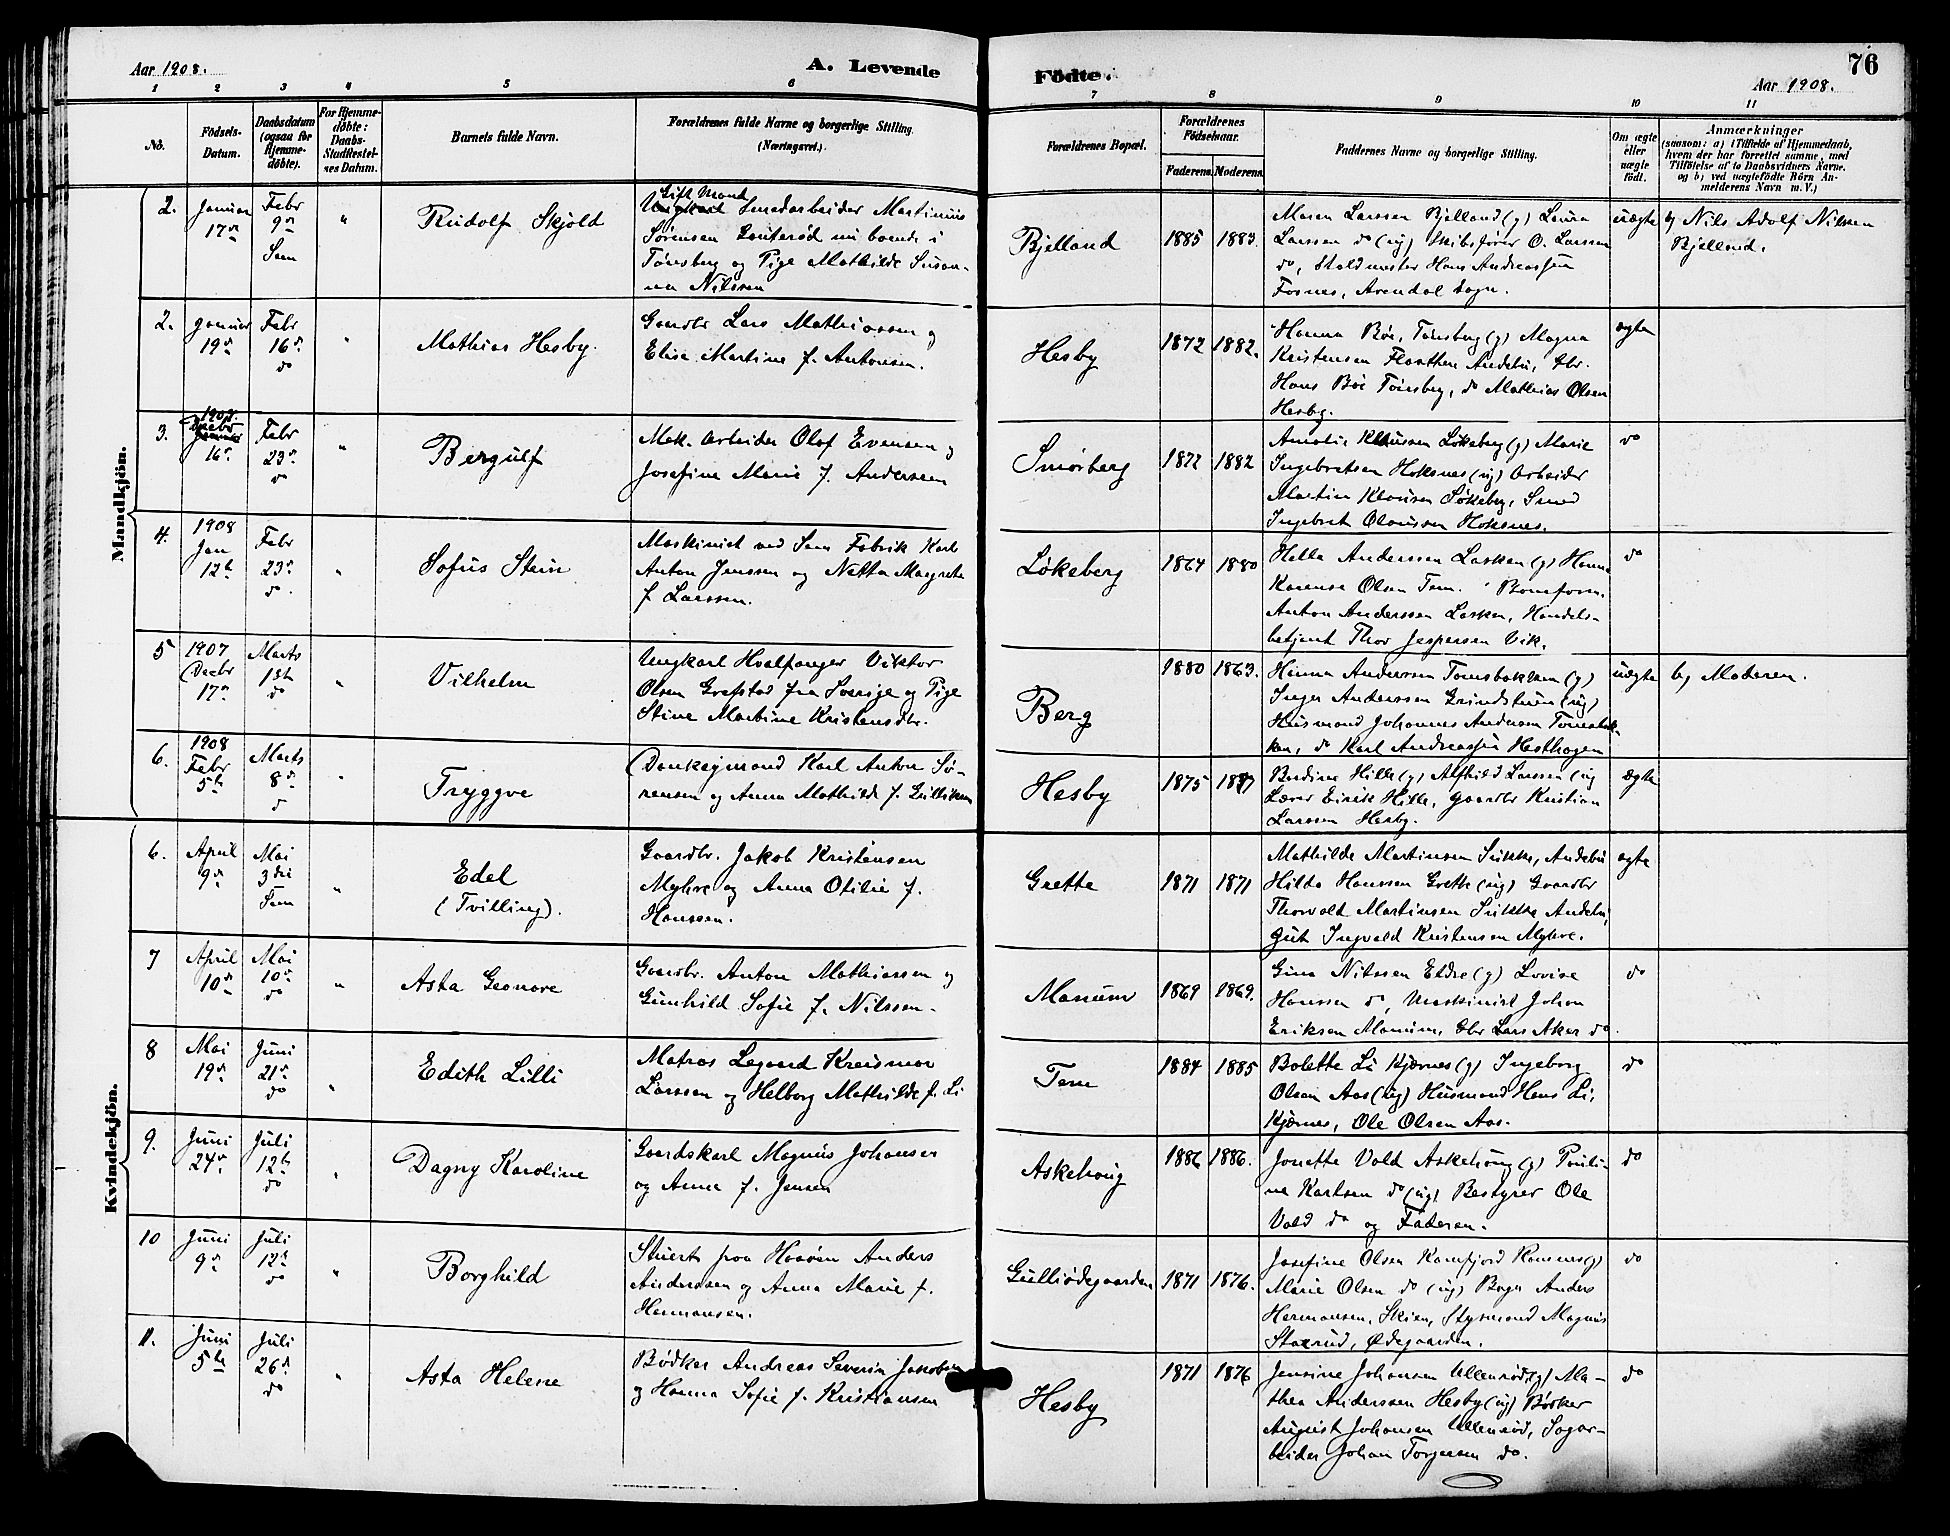 Aar 1908.
A. Levende
Födte.
76
Aar 1908.
1 2 3 4 5 6 7 8 9 10 11
No.
Födsels-
Datum.
Daabsdatum
(ogsaa for
Hjemme-
döbte).
For Hjemme-
döbte:
Daabs-
Stadfæstel-
ses Datum.
Barnets fulde Navn.
Forældrenes fulde Navne og borgerlige Stilling.
(Næringsvei.)
Forældrenes Bopæl.
Forældrenes
Födselsaar.
Faderens.
Moderens.
Faddernes Navne og borgerlige Stilling.
Om ægte
eller
uægte
födt.
Anmærkninger
(saasom: a) i Tilfælde af Hjemmedaab,
hvem der har forrettet samme, med
Tilföielse af to Daabsvidners Navne,
og b) ved uægtefödte Börn An-
melderens Navn m.V.)
Mandkjön.
2.
Januar
17de
Febr
9de
Sem
"
Rudolf Skjold
Gift Mand
Ungkarl Smedarbeider Martinius
Sørensen Gouterød nu boende i
Tønsberg og Pige Mathilde Susan-
na Nilssen
Bjelland
1885
1883.
Maren Larssen Bjelland (g) Laura
Larssen do (ug) Skibsfører O. Larssen
do, Staldmester Hans Andreassen
Fosnes, Arendal Sogn.
uægte
b) Nils Adolf Nilssen
Bjelland.
2.
Januar
19de
Febr
16de
do
"
Mathias Hesby.
Gaardbr Lars Mathiassen og
Elise Martine f. Antonsen.
Hesby
1872
1882.
Hanna Bøe, Tønsberg (g) Magna
Kristensen Flaatten Andebu, Gbr.
Hans Bøe Tønsberg, do Mathias Olsen
Hesby.
ægte
3.
1907.
Decbr
Januar
16de
Febr
23de
do
"
Bergulf
Mek. Arbeider Olaf Evensen og
Josefine Marie f. Anderssen
Smørberg
1872
1882
Amalie Klausen Løkeberg (g) Marie
Ingebretsen Hoksnes (ug) Arbeider
Martin Klausen Løkeberg, Smed
Ingebret Olaussen Hoksnes.
do
4.
1908
Jan
12te
Febr
23de
do.
"
Sofus Stein
Maskinist ved Sem Fabrik Karl
Anton Jenssen og Netta Margrete
f. Larssen.
Løkeberg
1864
1880
Helle Anderssen Lasken (g) Hanna
Karense Olsen Tem. Bomforv.
Anton Anderssen Lasken, Handels-
betjent Thor Jespersen Vik.
do
5
1907
Decbr
17de
Marts
1ste
do
"
Vilhelm
Ungkarl Hvalfanger Viktor
Olsen Grefstad fra Sverige og Pige
Stine Martine Kristensdtr.
Berg
1880
1863.
Hanna Andersen Tømsbakken (g)
Inger Anderssen Grindstuen (ug)
Husmand Johannes Andersen Tømsbak-
ken, do Karl Andreassen Hesthagen
uægte
b) Moderen.
6.
1908
Febr
5te
Marts
8de
do
"
Tryggve
Donkeymand Karl Anton Sø-
rensen og Anna Mathilde f. Gulliksen
Hesby
1875
1877
Bredine Hille (g) Alfhild Larssen (ug)
Lærer Eirik Hille, Gaardbr Kristian
Larssen Hesby.
ægte
Kvindekjön.
6.
April
9de
Mai
3die
Sem
"
Edel
(Tvilling).
Gaardbr. Jakob Kristensen
Myhre og Anna Otilie f.
Hanssen.
Grette
1871
1871
Mathilde Martinsen Sukke, Andebu
Hilda Hanssen Grette (ug) Gaardbr
Thorvald Martinsen Sukke Andebu,
Gut Ingvald Kristensen Myhre.
ægte
7
April
10de
Mai
10de
do
"
Asta Leonore
Gaardbr. Anton Mathiassen og
Gunhild Sofie f. Nilssen.
Manum
1869
1869.
Gina Nilssen Eldre (g) Lovise
Hanssen do, Maskinist Johan
Eriksen Manum, Gbr Lars Aker do.
do
8
Mai
19de
Juni
21de
do
"
Edith Lilli
Matros Legaard Kreismoe
Larssen og Helborg Mathilde f. Li
Tem
1884
1885
Bolette Li Kjærnes (g) Ingeborg
Olsen Aas (ug) Husmand Hans Li,
Kjærnes, Ole Olsen Aas.
do
9.
Juni
24de
Juli
12te
do
"
Dagny Karoline
Gaardskarl Magnus Johansen
og Anna f. Jensen
Askehaug
1886
1886.
Jonette Vold Askehaug (g) Pauli-
ne Karlsen do (ug). Bestyrer Ole
Vold do og Faderen.
do
10
Juni
9de
Juli
12te
do
"
Borghild
Stuert fra Haaøen Anders
Anderssen og Anna Marie f.
Hermansen.
Gulliødegaarden
1871
1876.
Josefine Olsen Kamfjord Ramnes (g)
Marie Olsen do (ug) Bager Anders
Hermansen, Skien, Styrmand Magnus
Staerud, Ødegaarden.
do
11.
Juni
5te
Juli
26de
do
"
Asta Helene
Bødker Andreas Severin Jakobsen
og Hanna Sofie f. Kristiansen
Hesby
1871
1876
Jensine Johansen Ullensrød (g) Ma-
thea Anderssen Hesby (ug) Bødker
August Johansen Ullensrød, Sagar-
beider Johan Torgersen do.
do